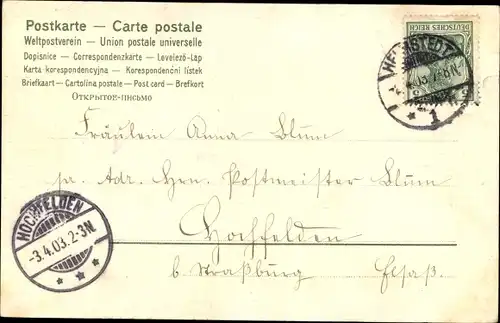 Postkarte — Carte postale
Weltpostverein — Union postale universelle
Dopisnice — Correspondenzkarte — Levelező-Lap
Karta korespondencyjna — Korespondenční lístek
Briefkaart — Cartolina postale — Post card — Brefkort
Открытое письмо
DEUTSCHES REICH
HELMSTEDT
1
Fräulein Anna Blum
pr. Adr. Hrn. Postmeister Blum
Hochfelden
b. Straßburg Elsaß.
HOCHFELDEN
-3.4.03.2-3N.